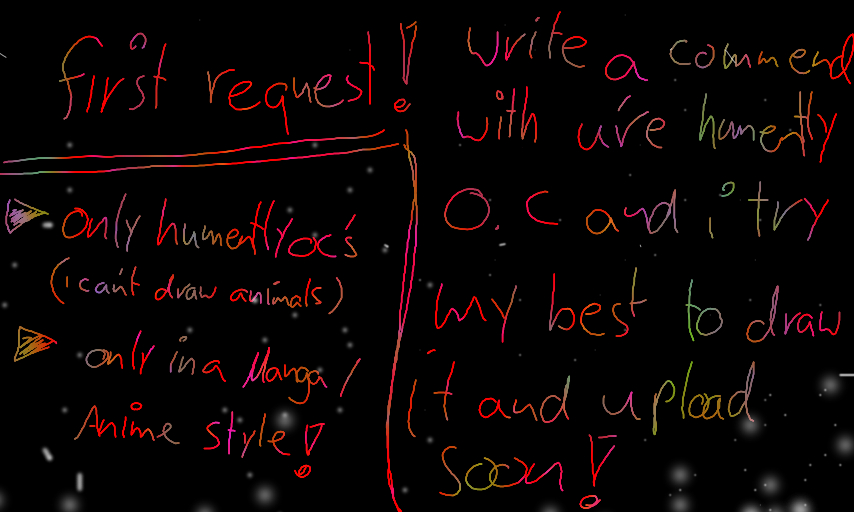 first request!
only humently oc's
(i can't draw animals)
only in a Manga /
Anime style!
write a commend
with u're humently
O.C and i try
my best to draw
it and upload
soon!